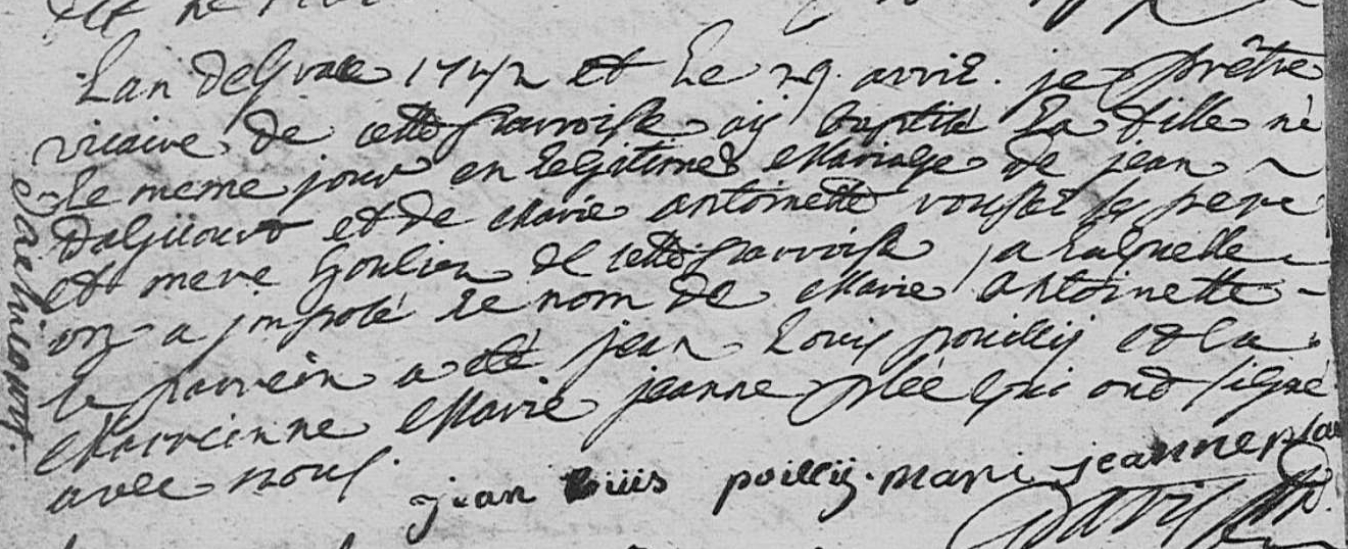 Lan de Grace 1742 et Le 29. avril. je prêtre
vicaire de cette parroisse aij baptisé La fille né
Le meme jour en legitime Mariage de jean
et de Marie antoinette ses pere
et mere de cette parroisse, a Laquelle
on a jmposé Le nom de Marie Antoinette -
le parrein a été jean Louis poüillij et La
Marreinne Marie jeanne plée qui ont signé
avec nous.
jean poillij. mari jeanne